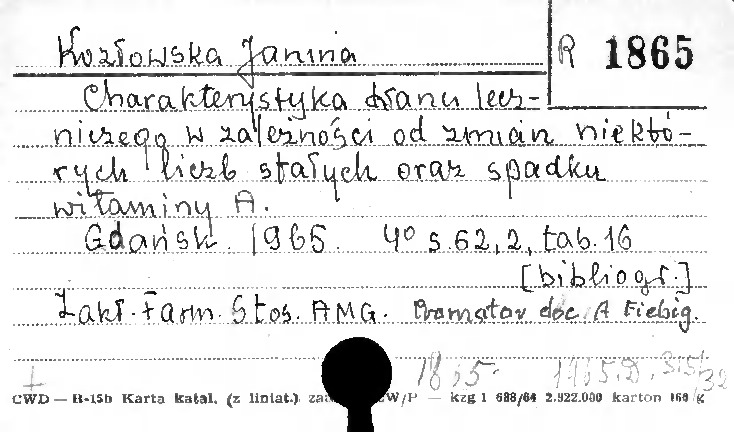 Kozłowska Janina
R 1865
Charakterystyka tranu lecz-
niczego w zależności od zmian niektó-
rych liczb stałych oraz spadku
witaminy A.
Gdańsk 1965. 4° s. 62, 2, tab. 16
[bibliogr.]
Zakł. Farm. Stos. AMG. Promotor doc. A Fiebig.
1865. 1965.D.
CWD — B-15b Karta katal. (z liniat.) W/P — kzg 1 688/64 2.922.000 karton 160 g